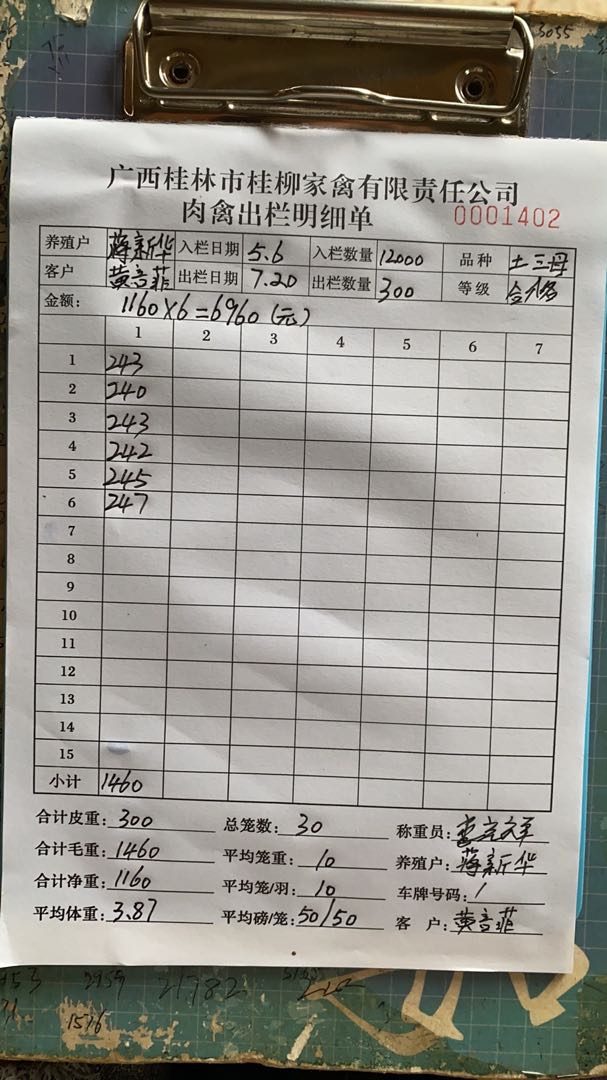 3055
广西桂林市桂柳家禽有限责任公司
肉禽出栏明细单 0001402
养殖户 蒋新华 入栏日期 5.6 入栏数量 12000 品种 土三母
客户 黄言菲 出栏日期 7.20 出栏数量 300 等级
金额: 1160×6=6960(元)
1 2 3 4 5 6 7
1 243
2 240
3 243
4 242
5 245
6 247
7
8
9
10
11
12
13
14
15
小计 1460
合计皮重: 300 总笼数: 30 称重员:
合计毛重: 1460 平均笼重: 10 养殖户: 蒋新华
合计净重: 1160 平均笼/羽: 10 车牌号码: /
平均体重: 3.87 平均磅/笼: 50/50 客 户: 黄言菲
21782
1516